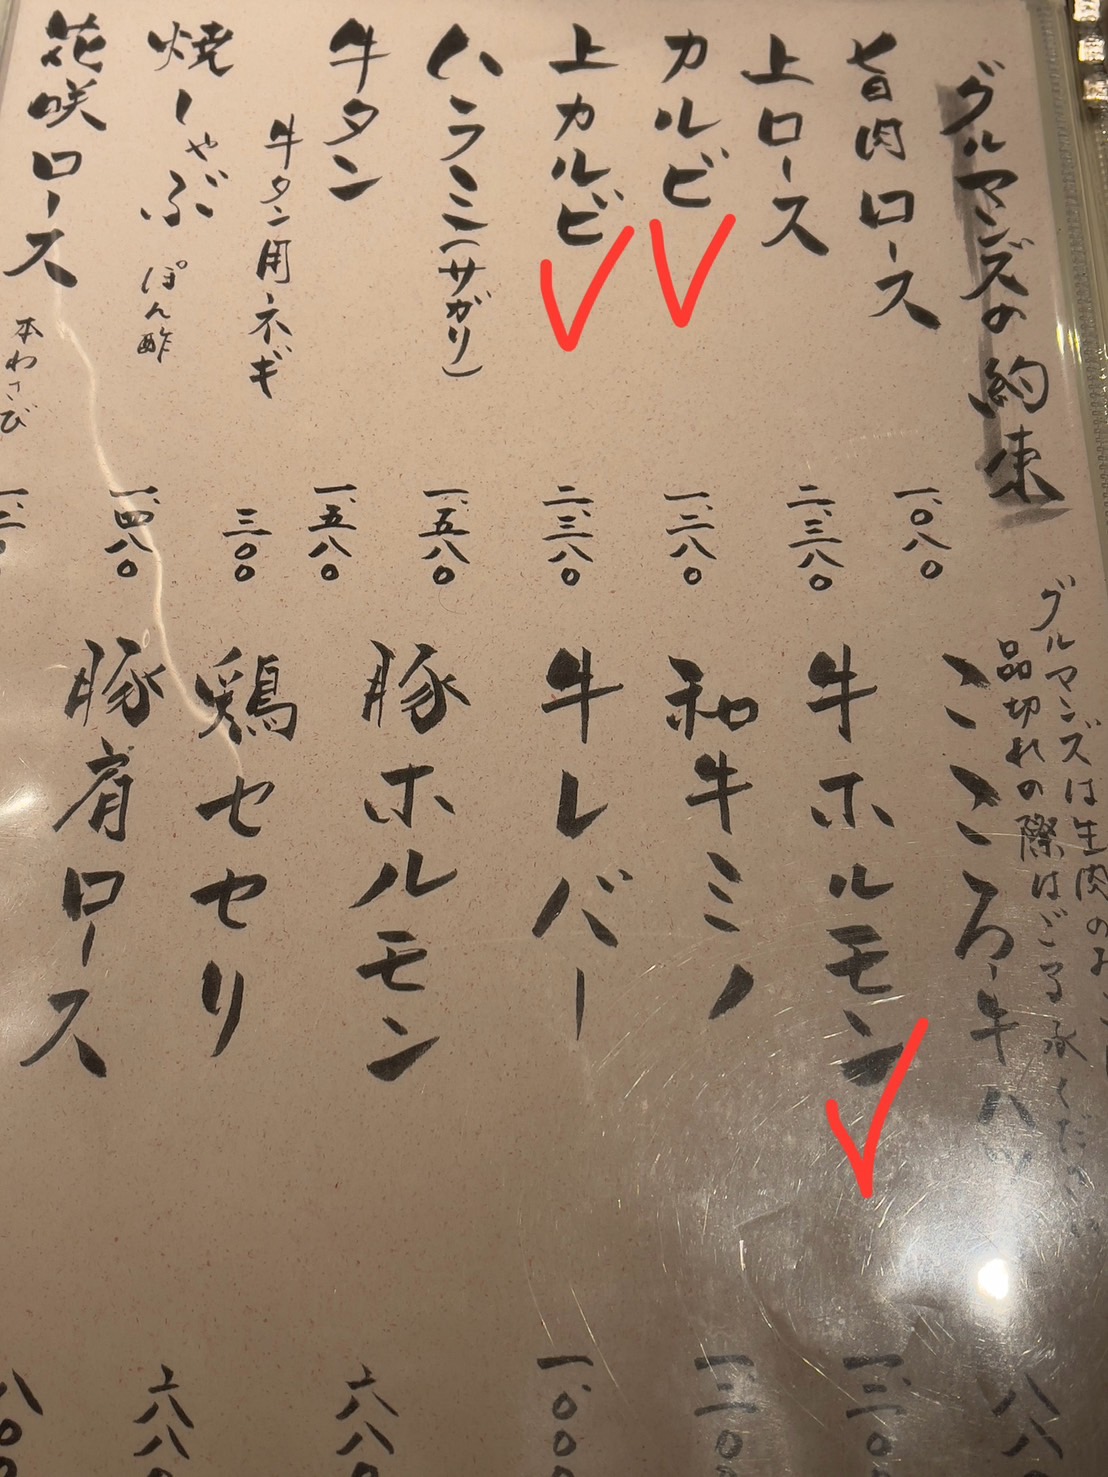 グルマンズの約束
グルマンズは生肉のお
品切れの際はご了承ください
旨肉ロース 一、〇八〇
上ロース 二、三八〇
カルビ 一、二八〇
上カルビ 二、三八〇
ハラミ(サガリ) 一、五八〇
牛タン 一、五八〇
牛タン用ネギ 三〇〇
焼しゃぶ ぽん酢 一、四八〇
花咲ロース 本わさび
こころ・牛ハツ 八八
牛ホルモン
和牛ミノ
牛レバー 一、〇〇
豚ホルモン 六八〇
鶏セセリ 六八〇
豚肩ロース 八〇〇